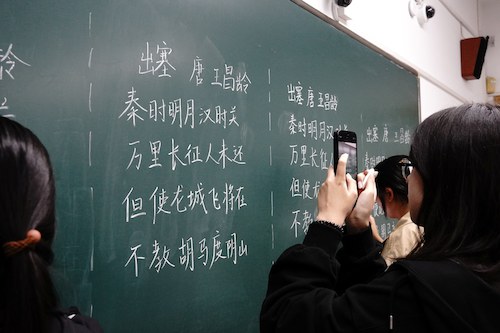 龄
出塞 唐 王昌龄
秦时明月汉时关
万里长征人未还
但使龙城飞将在
不教胡马度阴山
出塞 唐 王昌龄
秦时明月汉
万里长征
但使龙
不教
出塞 唐 王昌龄